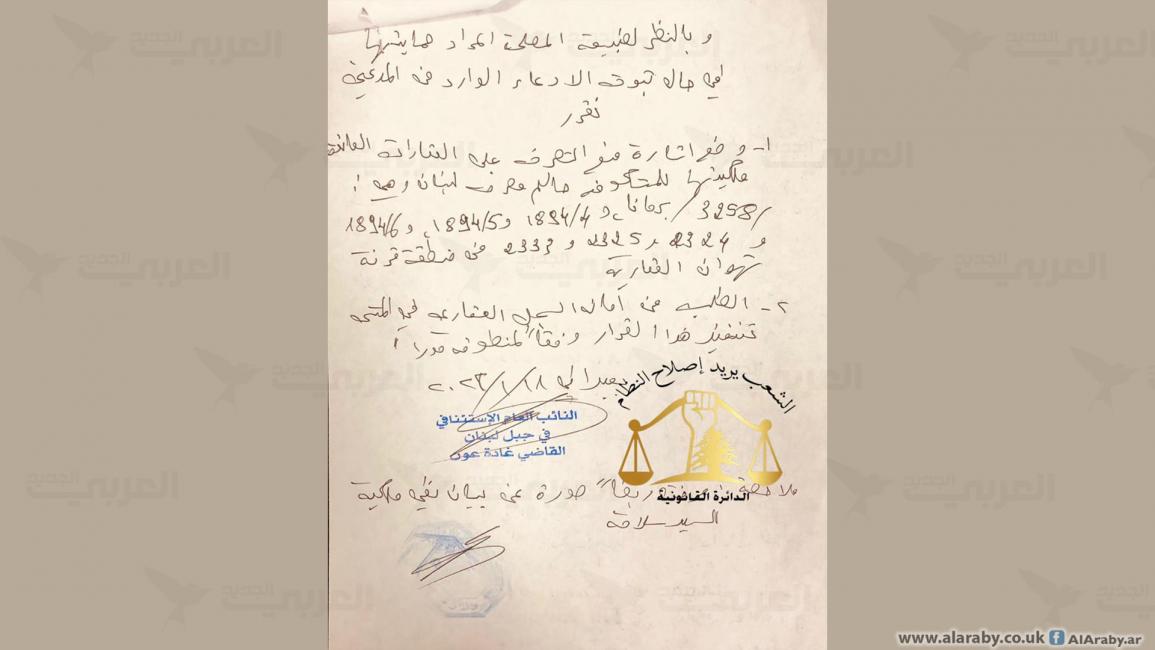 و بالنظر لطبيعة المصلحة المراد حمايتها
في حال ثبوت الادعاء الوارد من المدعين
نقرر
١- وضع اشارة منع التصرف على العقارات العائدة
ملكيتها للمشكو منه حاكم مصرف لبنان وهي:
/3258/ برمانا، و 1894/4 و 1894/5، و 1894/6
و 2324 و 2325 و 2333 من منطقة قرنة
شهوان العقارية
٢- الطلب من أمانة السجل العقاري في المتن
تنفيذ هذا القرار وفقاً لمنطوقه فوراً
بعبدا في ٢٠٢٣/١/١٨
النائب العام الإستئنافي
في جبل لبنان
القاضي غادة عون
الشعب يريد إصلاح النظام
الدائرة القانونية
ملاحظة ربطاً صورة عن بيان ملكية
السيد سلامة
العربي الجديد
www.alaraby.co.uk f AlAraby.ar